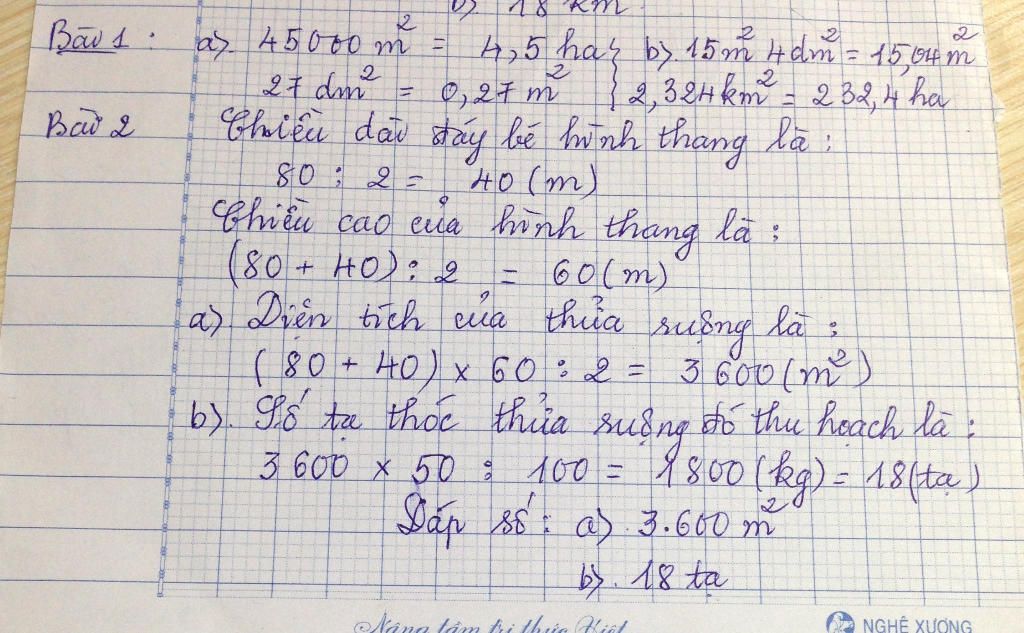 b) 18 km
Bài 1 : a) 45000 m² = 4,5 ha } b) 15m² 4dm² = 15,04m²
27 dm² = 0,27 m² } 2,324km² = 232,4 ha
Bài 2 Chiều dài đáy bé hình thang là :
80 : 2 = 40 (m)
Chiều cao của hình thang là :
(80 + 40) : 2 = 60 (m)
a) Diện tích của thửa ruộng là :
(80 + 40) x 60 : 2 = 3 600 (m²)
b) Số tạ thóc thửa ruộng đó thu hoạch là :
3 600 x 50 : 100 = 1800 (kg) = 18 (tạ)
Đáp số : a) 3.600 m²
b) 18 tạ
Nâng tầm tri thức Việt NGHÊ XƯƠNG